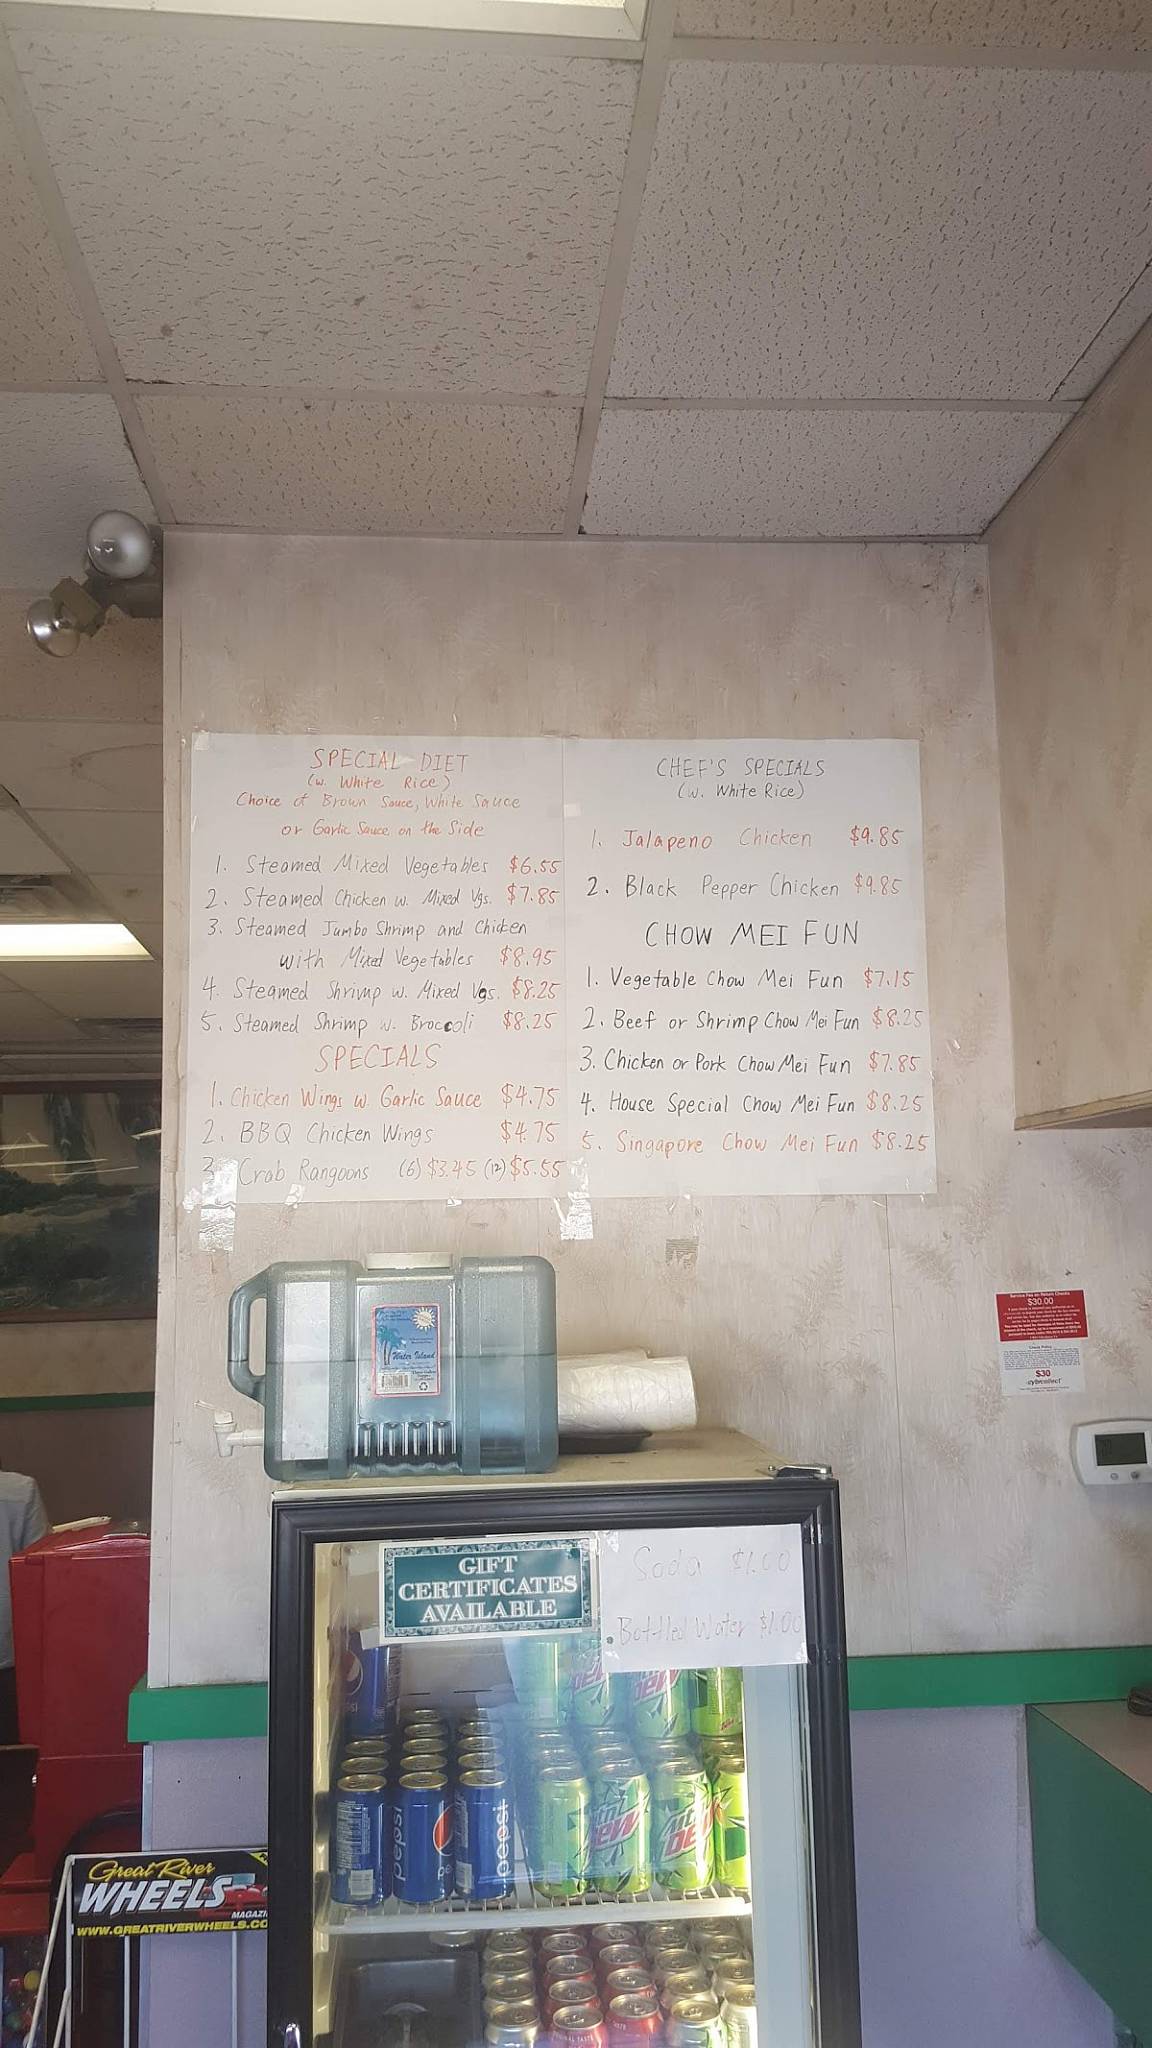 SPECIAL DIET
(w. White Rice)
Choice of Brown Sauce, White Sauce
or Garlic Sauce on the Side
1. Steamed Mixed Vegetables $6.55
2. Steamed Chicken w. Mixed Vgs. $7.85
3. Steamed Jumbo Shrimp and Chicken
with Mixed Vegetables $8.95
4. Steamed Shrimp w. Mixed Vgs. $8.25
5. Steamed Shrimp w. Broccoli $8.25
SPECIALS
1. Chicken Wings w. Garlic Sauce $4.75
2. BBQ Chicken Wings $4.75
3. Crab Rangoons (6) $3.45 (12) $5.55
CHEF'S SPECIALS
(w. White Rice)
1. Jalapeno Chicken $9.85
2. Black Pepper Chicken $9.85
CHOW MEI FUN
1. Vegetable Chow Mei Fun $7.15
2. Beef or Shrimp Chow Mei Fun $8.25
3. Chicken or Pork Chow Mei Fun $7.85
4. House Special Chow Mei Fun $8.25
5. Singapore Chow Mei Fun $8.25
Water Island
Service Fee on Return Checks
$30.00
$30
GIFT
CERTIFICATES
AVAILABLE
Soda $1.00
Bottled Water $1.00
pepsi
pepsi
mtn
DEW
mtn
DEW
Great River
WHEELS
MAGAZI
WWW.GREATRIVERWHEELS.CO